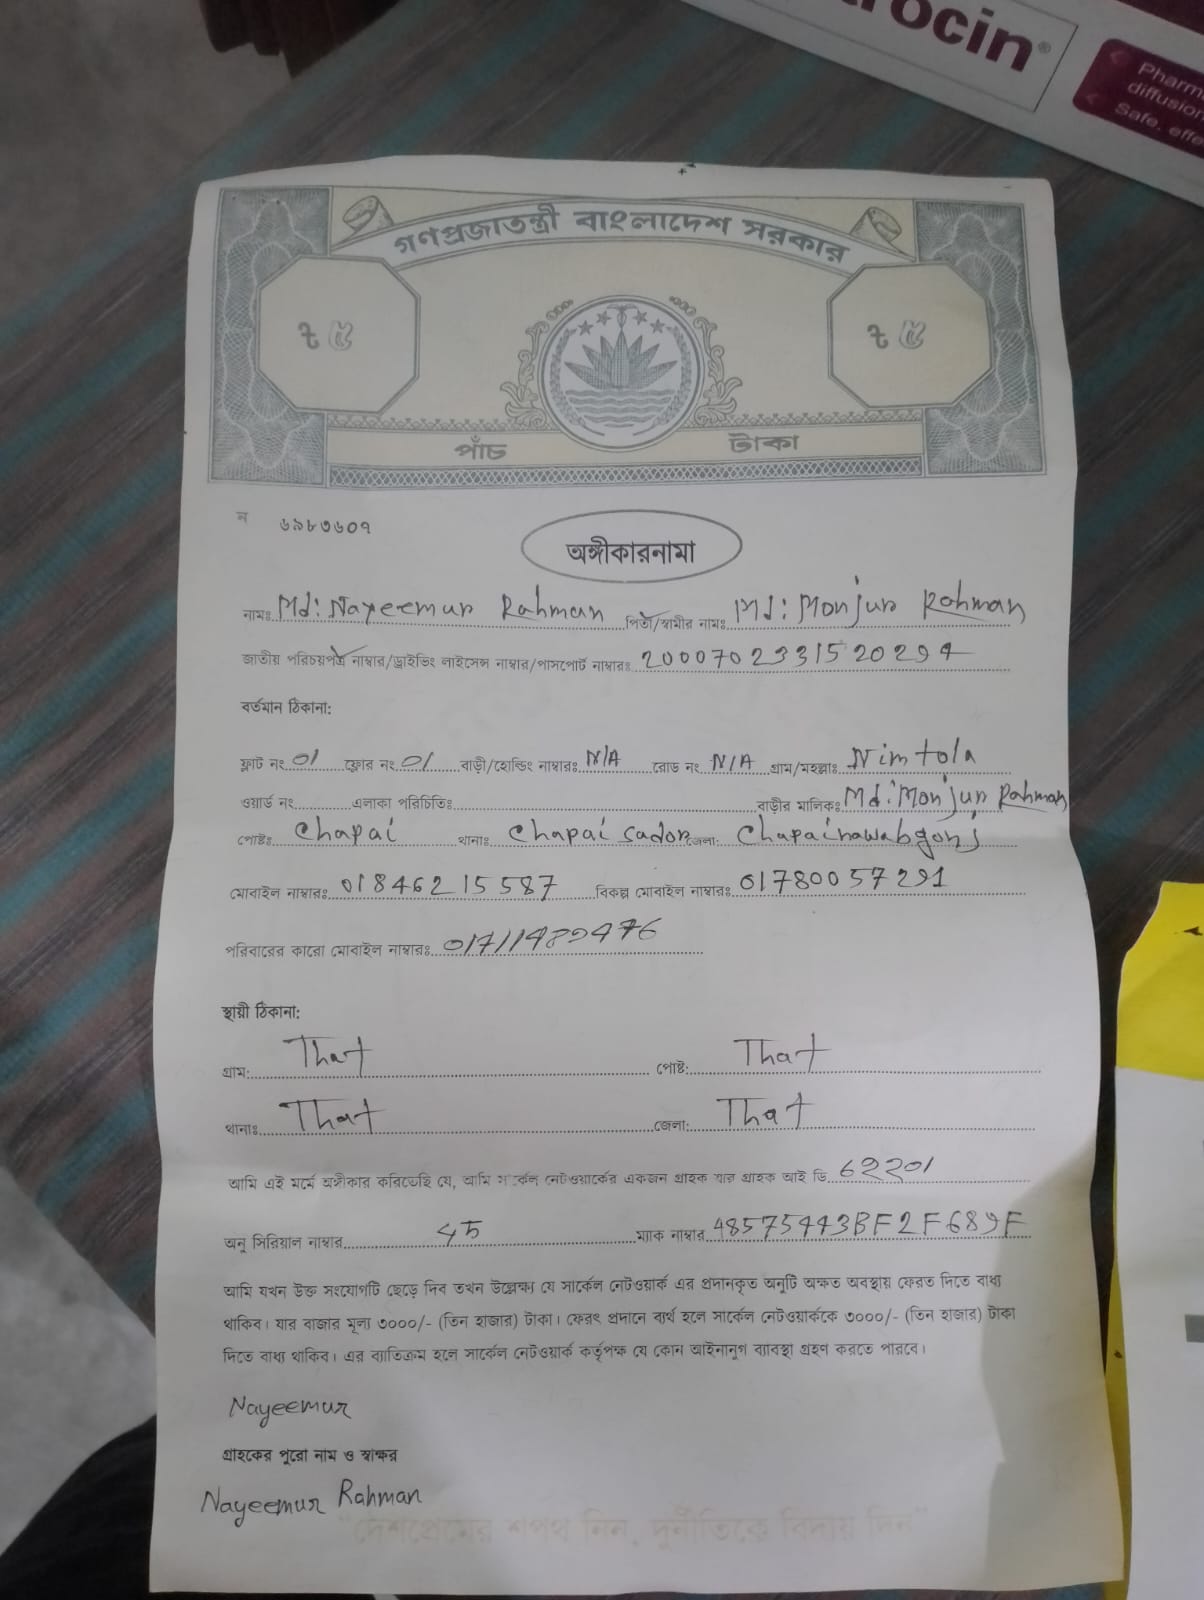 rocin®
Pharm
diffusion
Safe, effe
গণপ্রজাতন্ত্রী বাংলাদেশ সরকার
৳ ৫
৳ ৫
পাঁচ টাকা
ন ৬৯৮৩৬০৭
অঙ্গীকারনামা
নামঃ Md: Nayeemur Rahman পিতা/স্বামীর নামঃ Md: Monjur Rahman
জাতীয় পরিচয়পত্র নাম্বার/ড্রাইভিং লাইসেন্স নাম্বার/পাসপোর্ট নাম্বারঃ
বর্তমান ঠিকানা:
ফ্লাট নং 01 ফ্লোর নং 01 বাড়ী/হোল্ডিং নাম্বারঃ N/A রোড নং N/A গ্রাম/মহল্লাঃ Nimtola
ওয়ার্ড নং এলাকা পরিচিতিঃ বাড়ীর মালিকঃ Md: Monjur Rahman
পোষ্টঃ Chapai থানাঃ Chapai Sador জেলা: Chapainawabgonj
মোবাইল নাম্বারঃ 01846215587 বিকল্প মোবাইল নাম্বারঃ 01780057291
পরিবারের কারো মোবাইল নাম্বারঃ
স্থায়ী ঠিকানা:
গ্রাম: That পোষ্ট: That
থানাঃ That জেলা: That
আমি এই মর্মে অঙ্গীকার করিতেছি যে, আমি সার্কেল নেটওয়ার্কের একজন গ্রাহক যার গ্রাহক আই ডি 62201
অনু সিরিয়াল নাম্বার ম্যাক নাম্বার 48575443BF2F689F
আমি যখন উক্ত সংযোগটি ছেড়ে দিব তখন উল্লেক্ষা যে সার্কেল নেটওয়ার্ক এর প্রদানকৃত অনুটি অক্ষত অবস্থায় ফেরত দিতে বাধ্য
থাকিব। যার বাজার মূল্য ৩০০০/- (তিন হাজার) টাকা। ফেরৎ প্রদানে ব্যর্থ হলে সার্কেল নেটওয়ার্ককে ৩০০০/- (তিন হাজার) টাকা
দিতে বাধ্য থাকিব। এর ব্যাতিক্রম হলে সার্কেল নেটওয়ার্ক কর্তৃপক্ষ যে কোন আইনানুগ ব্যাবস্থা গ্রহণ করতে পারবে।
Nayeemur
গ্রাহকের পুরো নাম ও স্বাক্ষর
Nayeemur Rahman
"দেশপ্রেমের শপথ নিন, দুর্নীতিকে বিদায় দিন"